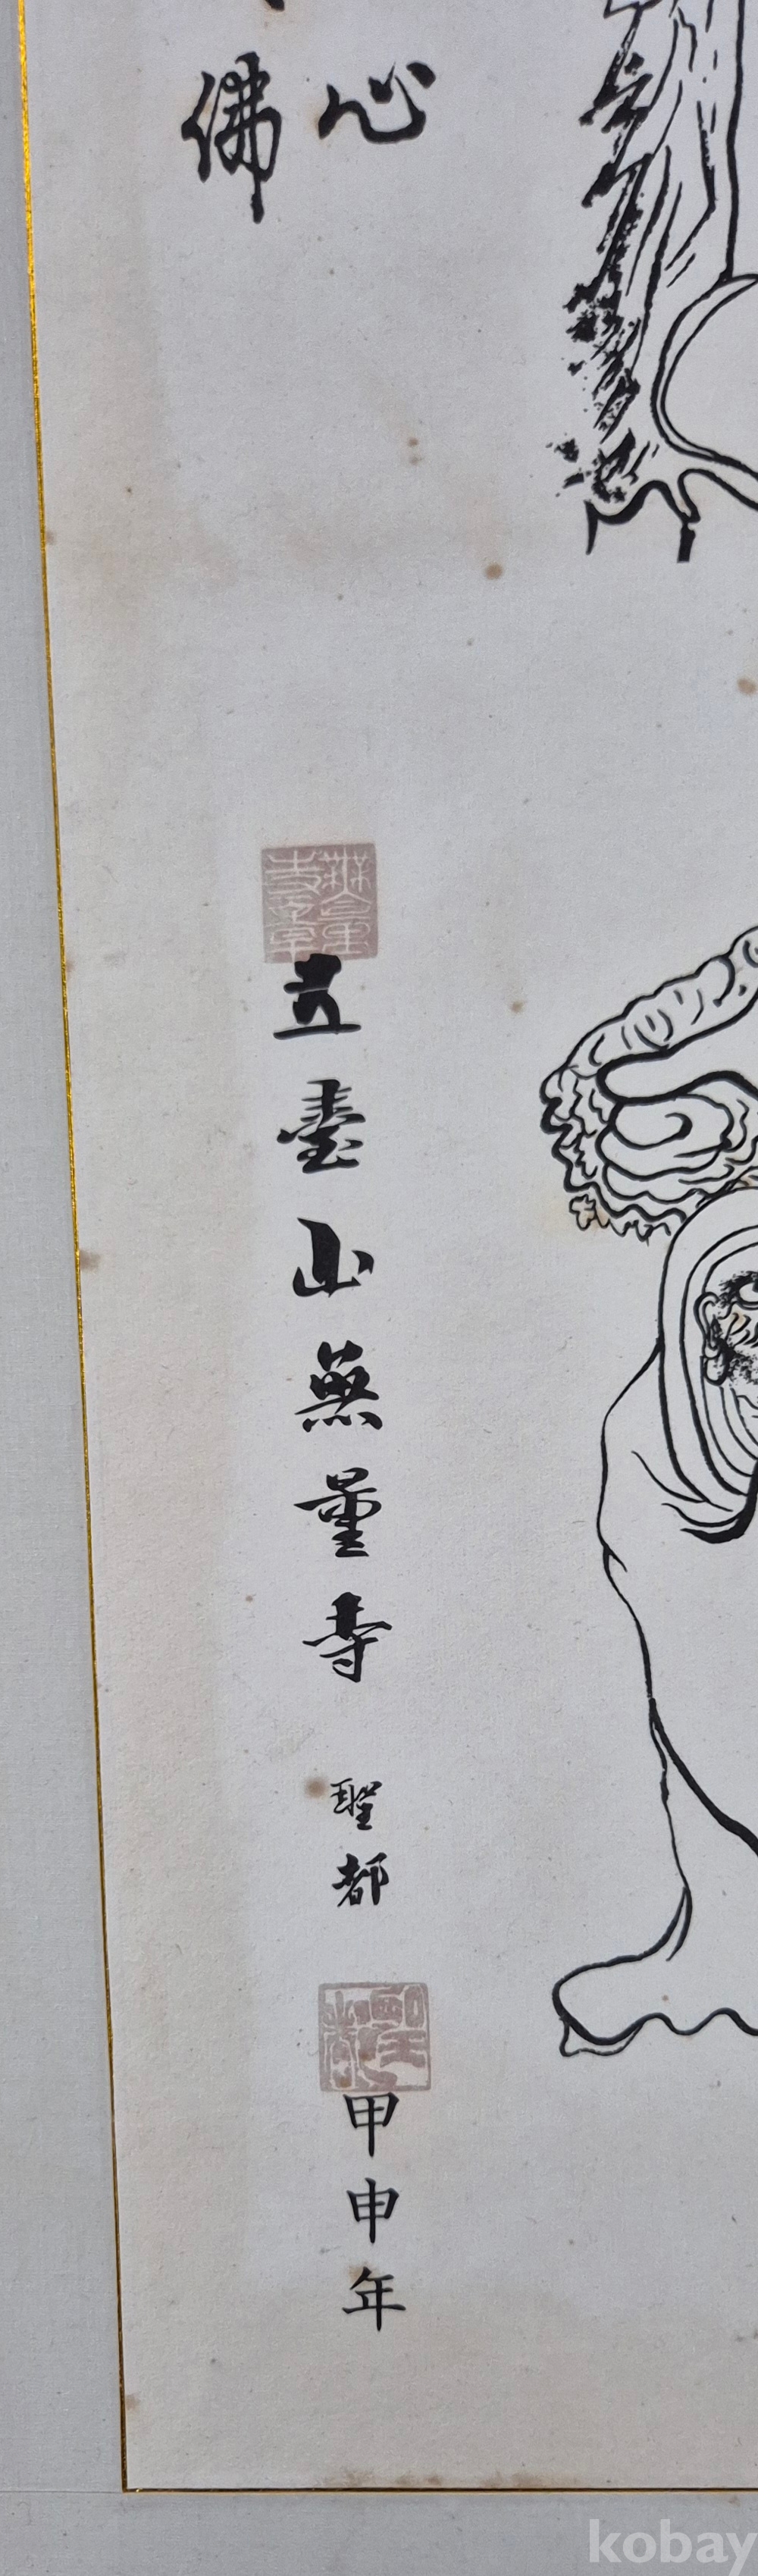 心
佛
五臺山無量寺 聖都
甲申年
kobay